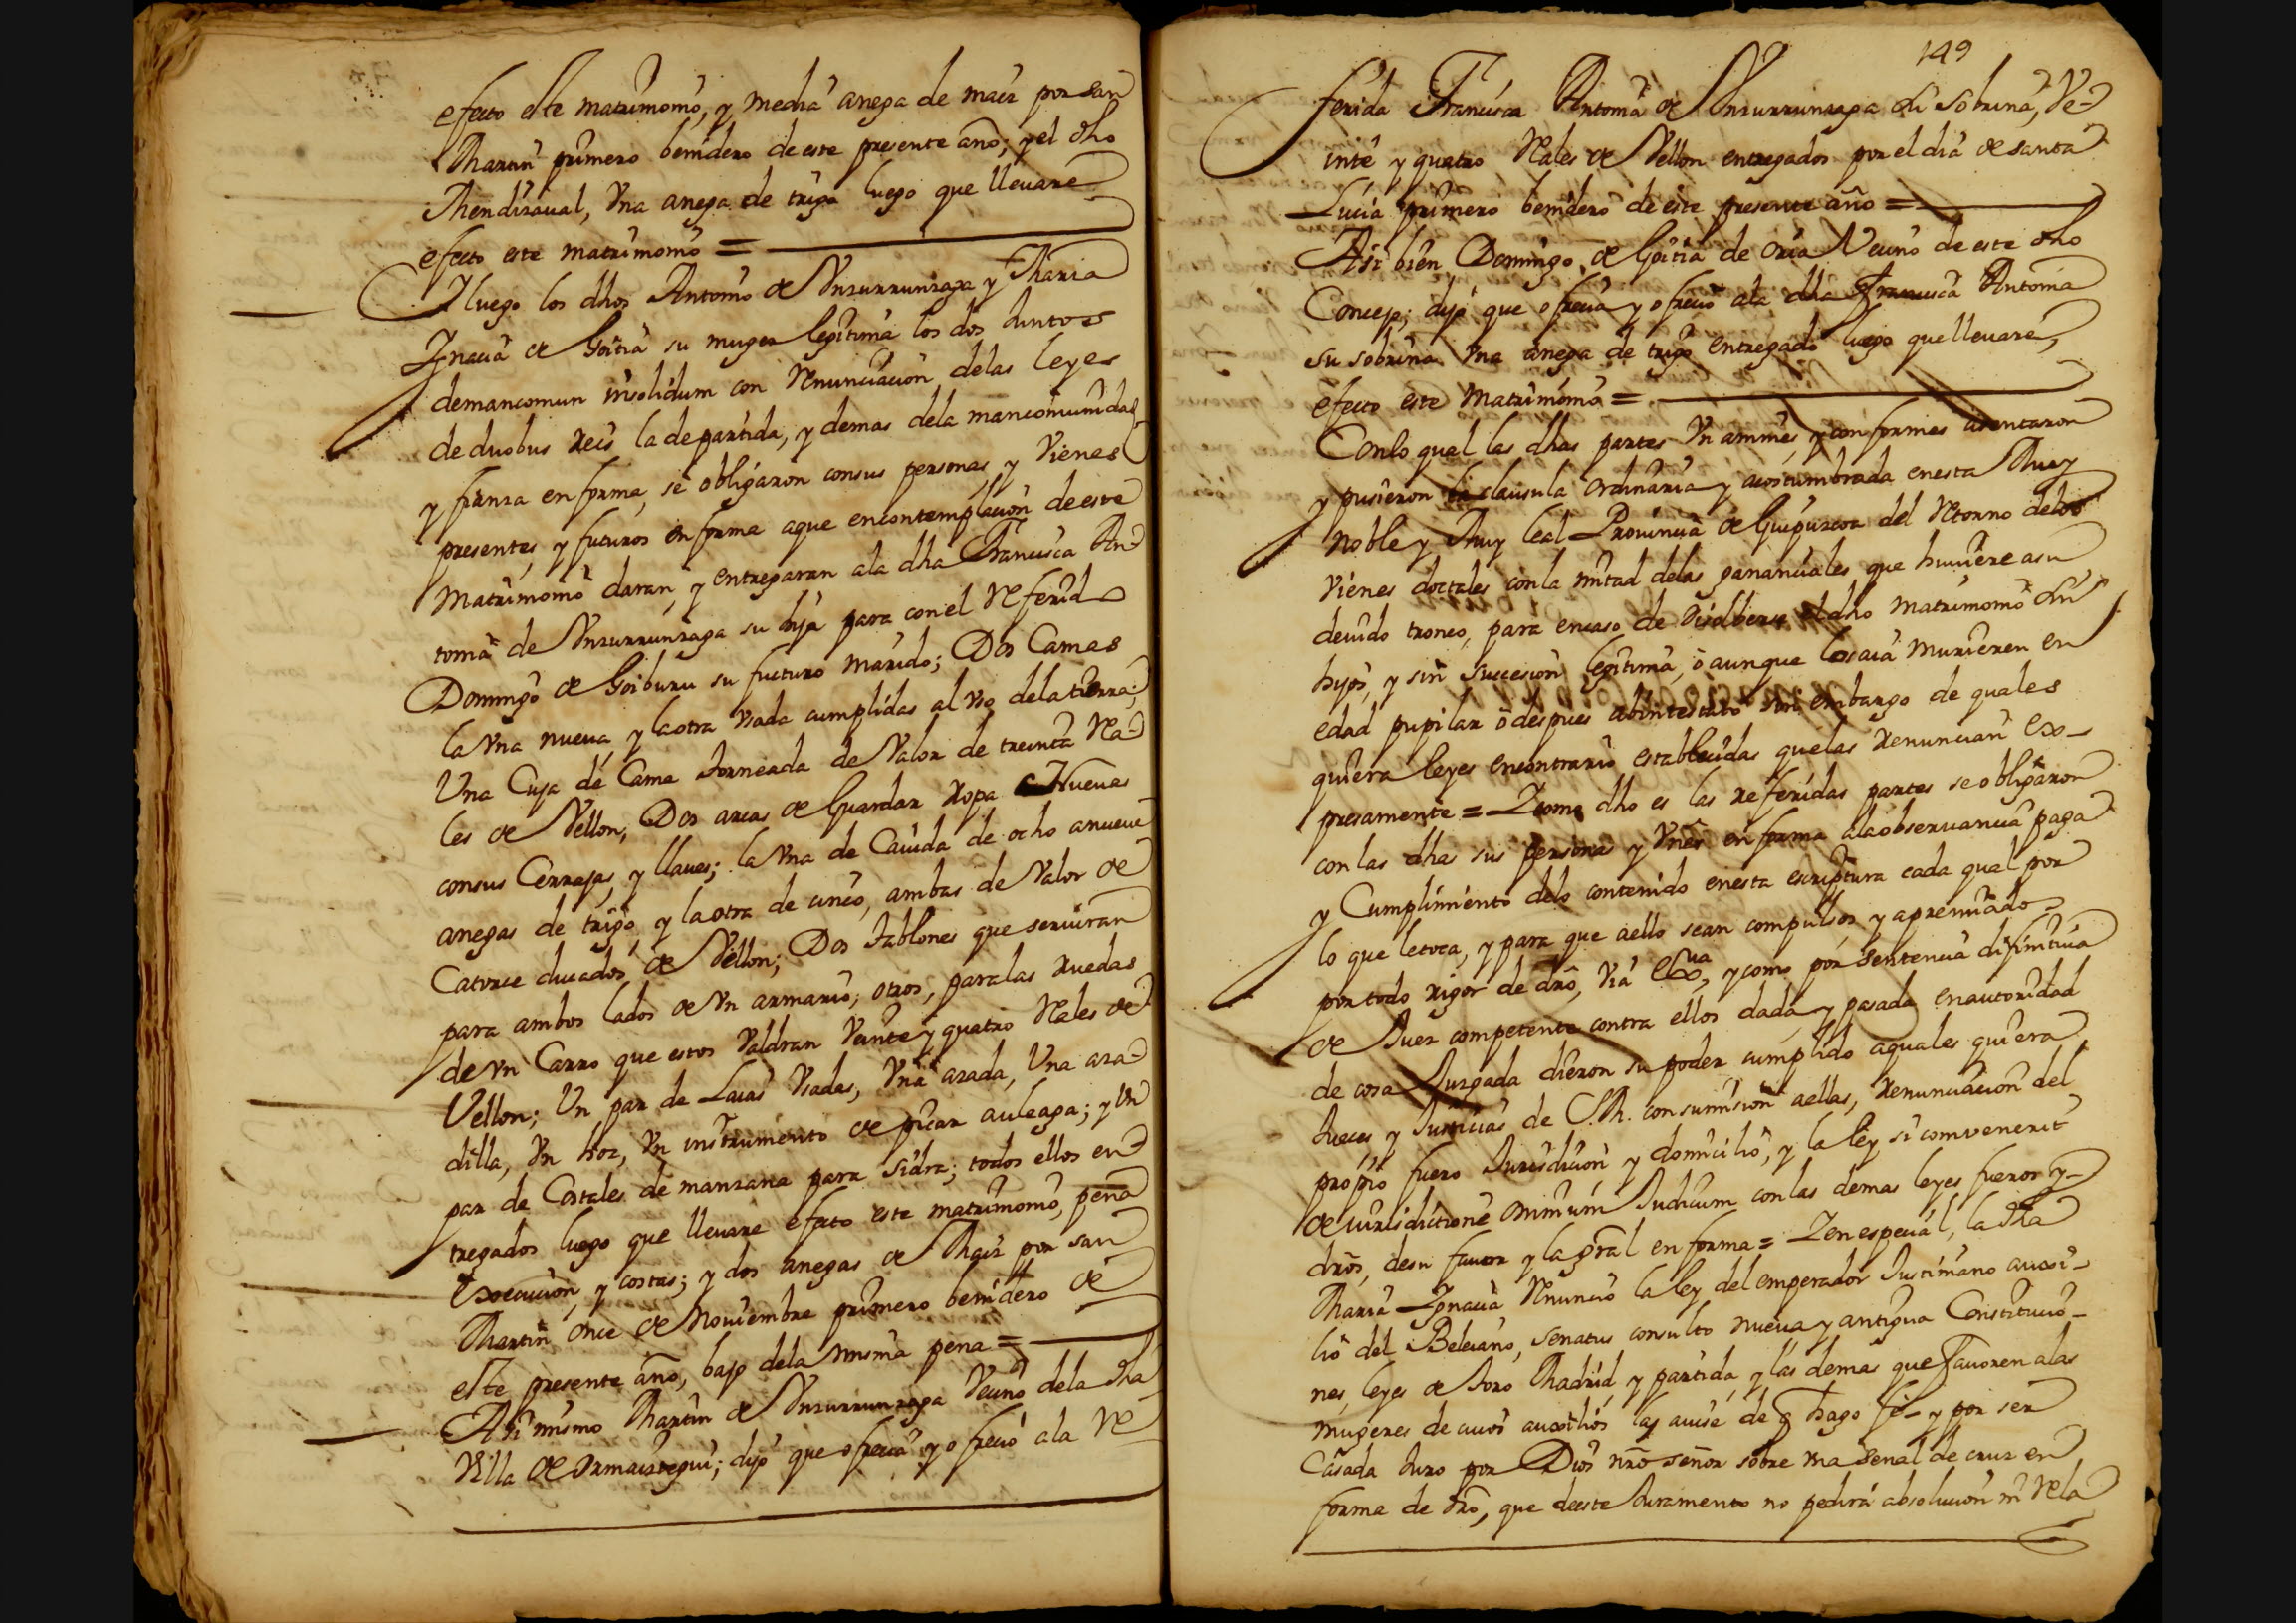 efecto este matrimonio, y media anega de maiz por san
Martin primero benidero de este presente año; y el dho
Mendizaval, Vna anega de trigo luego que lleuare
efecto este matrimonio =
I luego los dhos Antonio de Vnzurrunzaga y Maria
Ignacia de Goitia su muger legitima los dos Juntos
demancomun insolidum con Renunciacion delas leyes
de duobus reis la de partida, y demas dela mancomunidad
y fianza en forma, se obligaron consus personas, y Vienes
presentes, y futuros en forma aque encontemplacion de este
Matrimonio daran, y entregaran ala dha Francisca An-
tonia de Vnzurrunzaga su hija para con el Referido
Domingo de Goiburu su futuro marido; Dos Camas
la Vna nueua y la otra Vsada cumplidas al Vso dela tierra;
Una Cuja de Cama torneada de Valor de treinta Rea-
les de Vellon; Dos arcas de Guardar Ropa Nueuas
consus Cerrajas, y llaues; la Vna de Cauida de ocho anueue
anegas de trigo, y la otra de cinco, ambas de Valor de
Catorce ducados de Vellon; Dos tablones que seruiran
para ambos lados de Vn armario; otros, para las ruedas
de Vn Carro que estos Valdran Veinte y quatro Reales de
Vellon; Un par de Laias Vsadas, Vna azada, Una aza-
dilla, Vn hoz, Vn instrumento de picar auleaga; y Un
par de Costales de manzana para Sidra; todos ellos en-
tregados luego que lleuare efecto este matrimonio, pena
Execucion, y costas; y dos anegas de Maiz por san
Martin once de Nouiembre primero benidero de
este presente año, bajo dela misma pena =
Asi mismo Martin de Vnzurrunzaga Vecino dela dha
Villa de Ormaiztegui; dijo que ofrecia y ofrecio ala Re-
149
ferida Francisca Antonia de Vnzurrunzaga su sobrina, Ve-
inte y quatro Reales de Vellon entregados por el dia de santa
Lucia primero benidero de este presente año =
Asi bien Domingo de Goitia de Oria Vecino de este dho
Concejo; dijo que ofrecia y ofrecio ala dha Francisca Antonia
su sobrina Vna anega de trigo entregado luego que lleuare,
efecto este Matrimonio =
Conlo qual las dhas partes Vnanimes, y conformes asentaron
y pusieron la clausula ordinaria y acostumbrada enesta Muy
Noble y Muy leal Prouincia de Guipuzcoa del Retorno delos
Vienes dotales con la mitad delas gananciales que huuiere asu
deuido tronco, para encaso de disolberse el dho matrimonio sin
hijos, y sin succesion legitima, ò aunque los aia murieren en
edad pupilar ò despues abintestato sin embargo de quales
quiera leyes encontrario establecidas quelas Renuncian ex-
presamente = I como dho es las referidas partes se obligaron
con las dhas sus personas y Vienes en forma ala obseruancia paga
y Cumplimiento delo contenido enesta escriptura cada qual por
lo que le toca, y para que aello sean compulsos y apremiados
por todo rigor de dro, Via exua, y como por sentencia difinitiua
de Juez competente contra ellos dada, y pasada enautoridad
de cosa Juzgada dieron su poder cumplido aquales quiera
Jueces y Justicias de S.M. con sumision aellas, Renunciacion del
propio fuero Jurisdicion y domicilio, y la ley si convenerit
de iurisdictione omnium Judicum con las demas leyes fueros y
dros, desu fauor y la gral en forma = I en especial, la dha
Maria Ignacia Renuncio la ley del emperador Justiniano auxi-
lio del Beleiano, senatus consulto nueua y antigua Constitucio-
nes, leyes de toro Madrid y partida, y las demas que fauorecen alas
mugeres de cuios auxilios las auise de q hago fe= y por ser
Casada Juro por Dios nro señor sobre vna señal de cruz en
forma de dro, que deeste Juramento no pedirá absolucion ni Rela